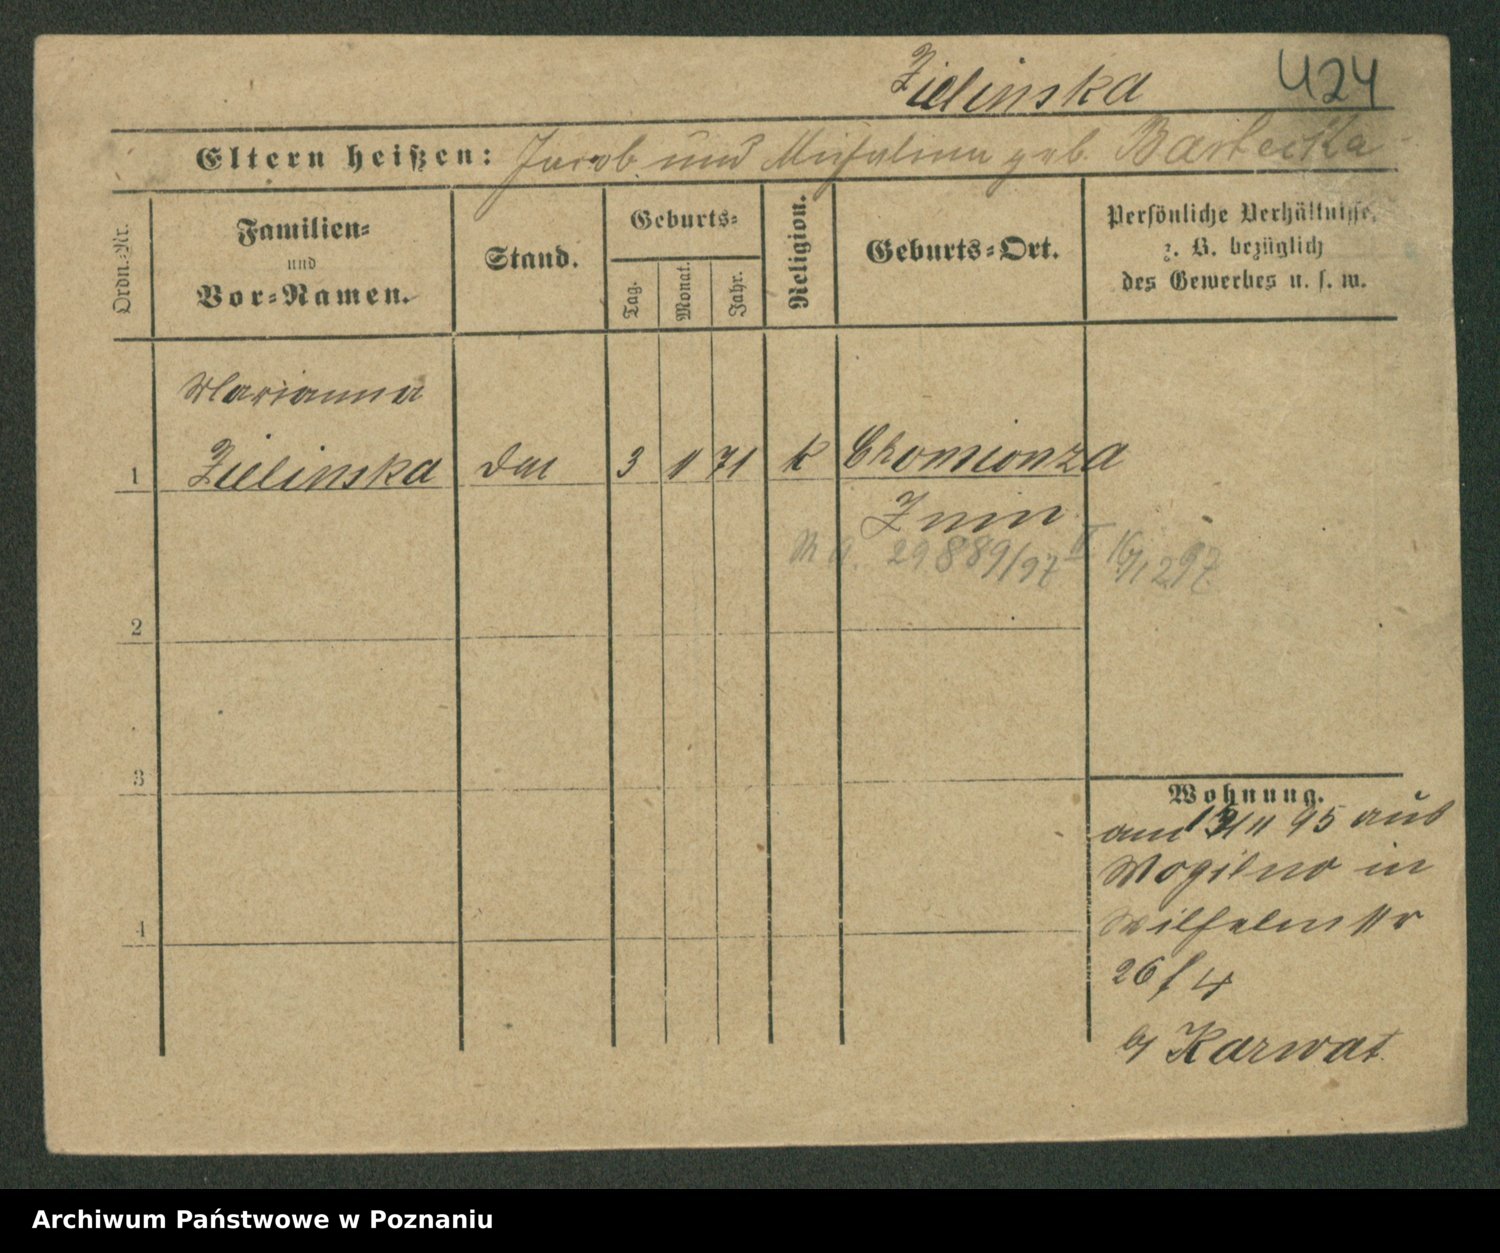 Zielinska 424
Eltern heißen: Jacob und Michalina geb. Bartecka
Ordn.-Nr.
Familien-
und
Vor-Namen.
Stand.
Geburts-
Tag.
Monat.
Jahr.
Religion.
Geburts-Ort.
Persönliche Verhältnisse,
z. B. bezüglich
des Gewerbes u. s. w.
Marianna
1 Zielinska 3 11 71 k Chomionza
Znin
29889/97 II
2
3
4
Wohnung.
am 11 95 aus
Mogilno in
Wilhelmstr
26
b/ Karwat
Archiwum Państwowe w Poznaniu